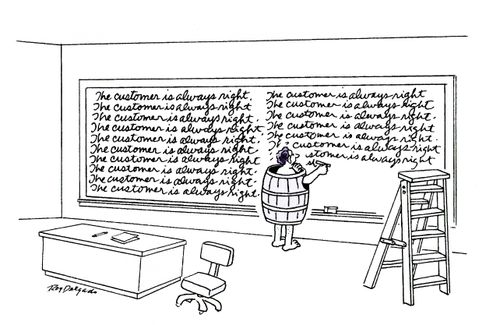 The customer is always right.
The customer is always right
The customer is always right.
The customer is always right.
The customer is always right.
The customer is always right.
The customer is always right
The customer is always right.
The customer is always right.
The customer is always right.
The customer is always right
The customer is always right.
The customer is always right.
The customer is always right
The customer is always right.
customer is always right
stomer is always right
Roy Delgado